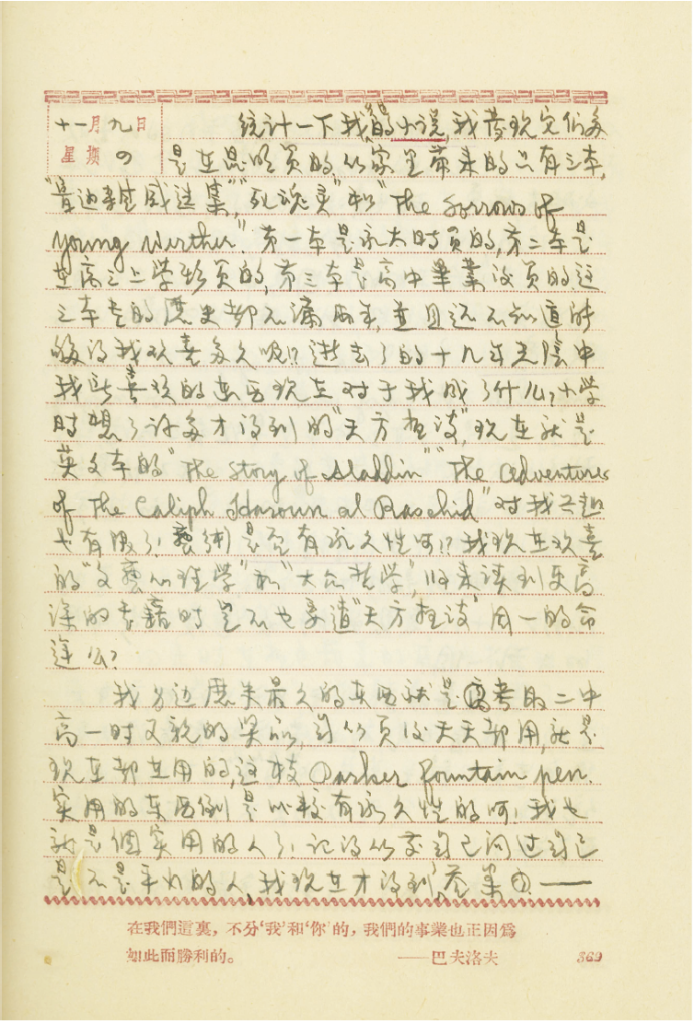 十一月九日
星期四
统计一下我的小说,我发现它们多
是在昆明买的,从家里带来的只有三本,
"普迪轰威选集""死魂灵"和"The Sorrows of
young Werther". 第一本是永大时买的,第二本是
在高三上学期买的,第三本是高中畢業后买的这
三本书的歷史都不满两年,並且还不知道能
够得我欢喜多久呢!?逝去了的十几年光陰中
我所喜欢的东西现在对于我成了什么?小学
时想了许多才得到的"天方夜谈",现在就是
英文本的"The story of Aladdin""The adventures
of The Caliph Haroun al Raschid"对我兴趣
也有限了!藝術是否有永久性呵!?我现在欢喜
的"文藝心理学"和"大众哲学",归来读到更高
深的书籍时岂不也要遭"天方夜谈"同一的命
運么?
我身边歷史最久的东西就是考取二中
高一时父親的奖品,自从买后天天都用,就是
现在都在用的,这枝Parker fountain pen.
实用的东西倒是比较有永久性的呵!我也
就是個实用的人了!记得从前自己问过自己
是不是平凡的人,我现在才得到答案的——
在我們這裏,不分'我'和'你'的,我們的事業也正因爲
如此而勝利的。 ——巴夫洛夫 369